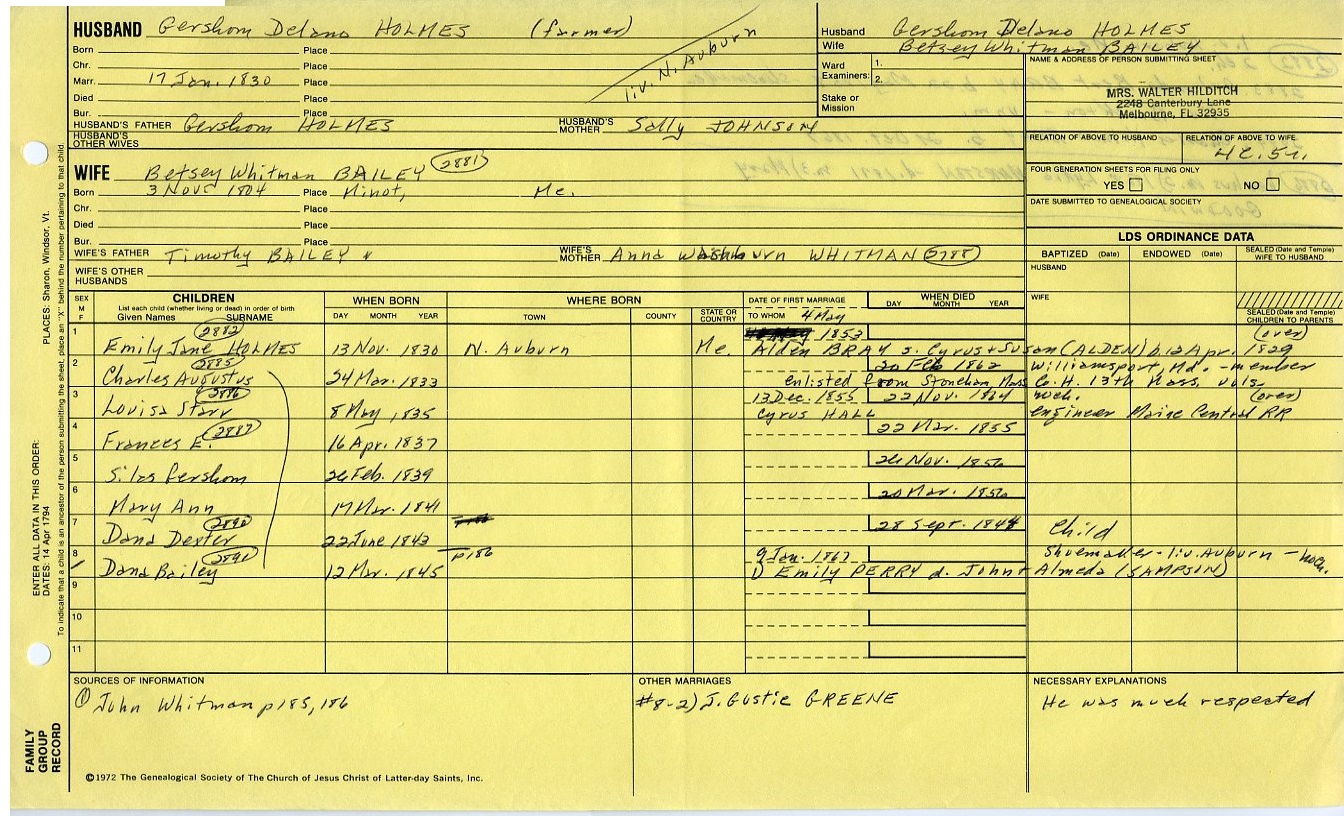 HUSBAND Gershom Delano HOLMES (farmer)
liv. N. Auburn
Born Place
Chr. Place
Marr. 17 Jan. 1830 Place
Died Place
Bur. Place
HUSBAND'S FATHER Gershom HOLMES HUSBAND'S MOTHER Sally JOHNSON
HUSBAND'S OTHER WIVES
Husband Gershom Delano HOLMES
Wife Betsey Whitman BAILEY
Ward Examiners: 1. 2.
Stake or Mission
NAME & ADDRESS OF PERSON SUBMITTING SHEET
MRS. WALTER HILDITCH
2248 Canterbury Lane
Melbourne, FL 32935
RELATION OF ABOVE TO HUSBAND RELATION OF ABOVE TO WIFE
FOUR GENERATION SHEETS FOR FILING ONLY
YES NO
DATE SUBMITTED TO GENEALOGICAL SOCIETY
WIFE Betsey Whitman BAILEY 2881
Born 3 Nov 1804 Place Minot, Me.
Chr. Place
Died Place
Bur. Place
WIFE'S FATHER Timothy BAILEY WIFE'S MOTHER Anna Washburn WHITMAN
WIFE'S OTHER HUSBANDS
LDS ORDINANCE DATA
BAPTIZED (Date) ENDOWED (Date) SEALED (Date and Temple) WIFE TO HUSBAND
HUSBAND
WIFE
SEALED (Date and Temple) CHILDREN TO PARENTS
SEX M F CHILDREN List each child (whether living or dead) in order of birth Given Names SURNAME
WHEN BORN DAY MONTH YEAR
WHERE BORN TOWN COUNTY STATE OR COUNTRY
DATE OF FIRST MARRIAGE TO WHOM
WHEN DIED DAY MONTH YEAR
1 2882 4 May 1853 (over)
Emily Jane HOLMES 13 Nov. 1830 N. Auburn Me. Alden BRAY s. Cyrus + Susan (ALDEN) b. 12 Apr. 1829
2 2885 20 Feb 1862 Williamsport, Md. - member
Charles Augustus 24 Mar. 1833 enlisted from Stoneham Mass Co. H. 13th Mass. vols.
3 2886 13 Dec. 1855 22 Nov. 1864 noch. (over)
Louisa Starr 8 May, 1835 Cyrus HALL engineer Maine Central RR
4 2887 22 Mar. 1855
Frances E. 16 Apr. 1837
5 26 Nov. 1856
Silas Gershom 26 Feb. 1839
6 20 Mar. 1856
Mary Ann 17 Mar. 1841
7 2890 28 Sept. 1844 Child
Dana Dexter 22 June 1843
8 2891 p186 9 Jan. 1867 Shoemaker - liv. Auburn - noch.
Dana Bailey 12 Mar. 1845 1) Emily PERRY d. John + Almeda (SAMPSON)
9
10
11
SOURCES OF INFORMATION
① John Whitman p185, 186
OTHER MARRIAGES
#8-2) J. Gustie GREENE
NECESSARY EXPLANATIONS
He was much respected
©1972 The Genealogical Society of The Church of Jesus Christ of Latter-day Saints, Inc.
FAMILY GROUP RECORD
ENTER ALL DATA IN THIS ORDER:
DATES: 14 Apr 1794
PLACES: Sharon, Windsor, Vt.
To indicate that a child is an ancestor of the person submitting the sheet, place an "X" behind the number pertaining to that child.